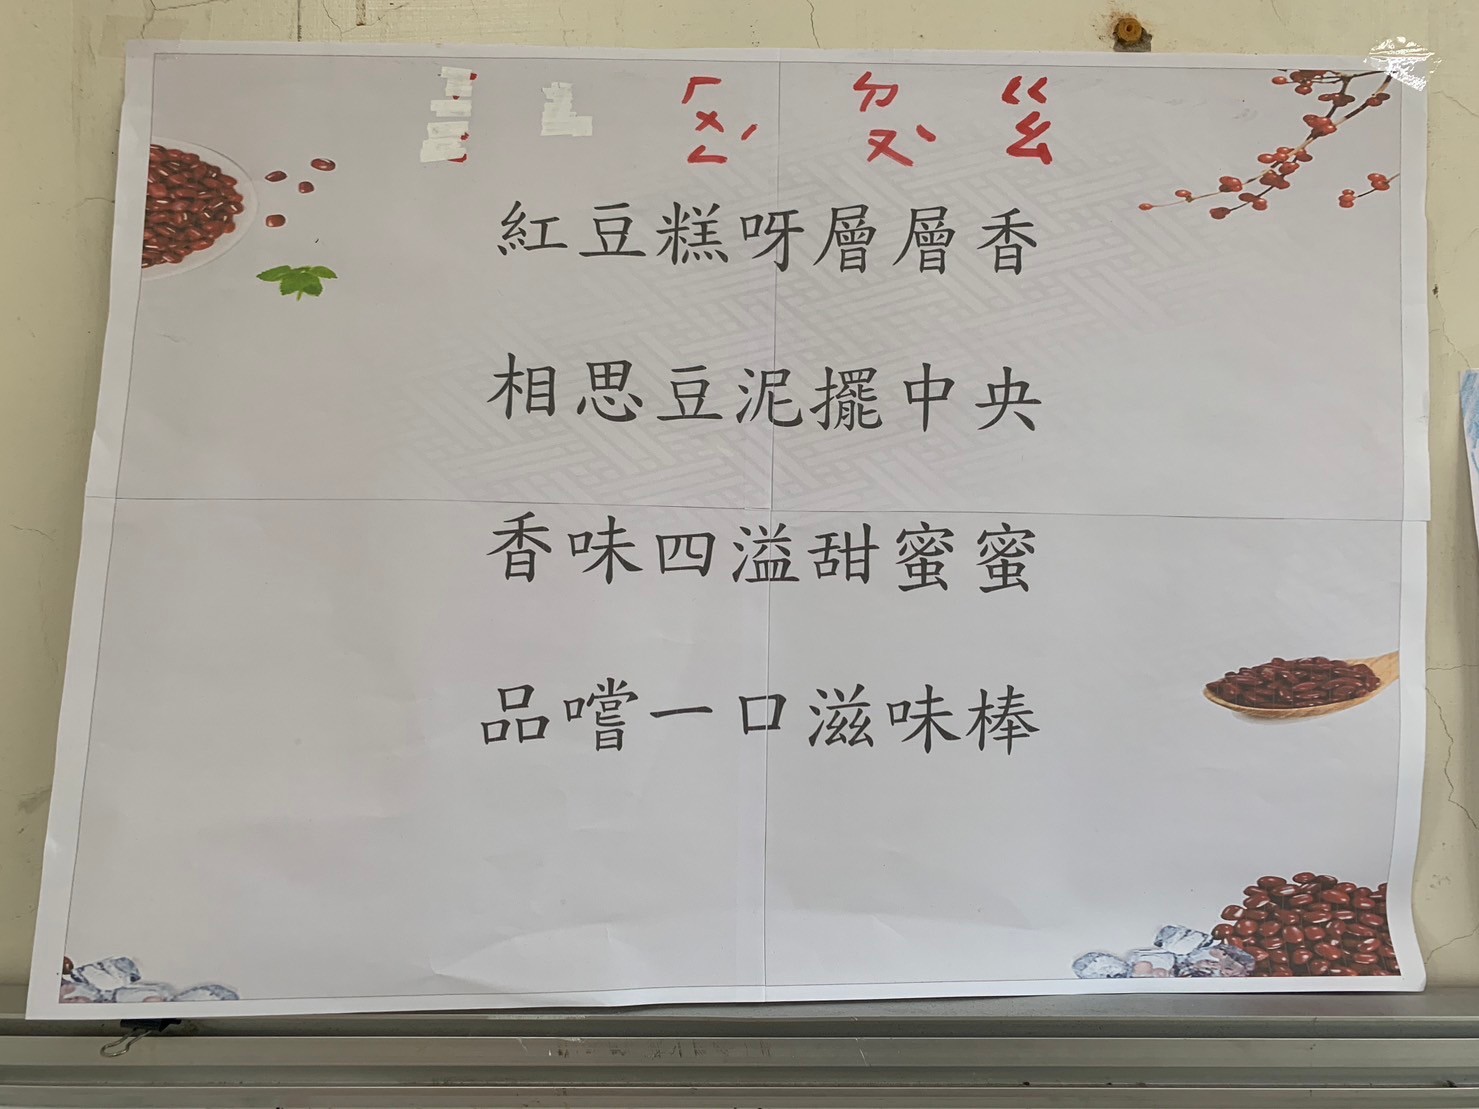 ㄏㄨㄥˊ ㄉㄡˋ ㄍㄠ
紅豆糕呀層層香
相思豆泥擺中央
香味四溢甜蜜蜜
品嚐一口滋味棒